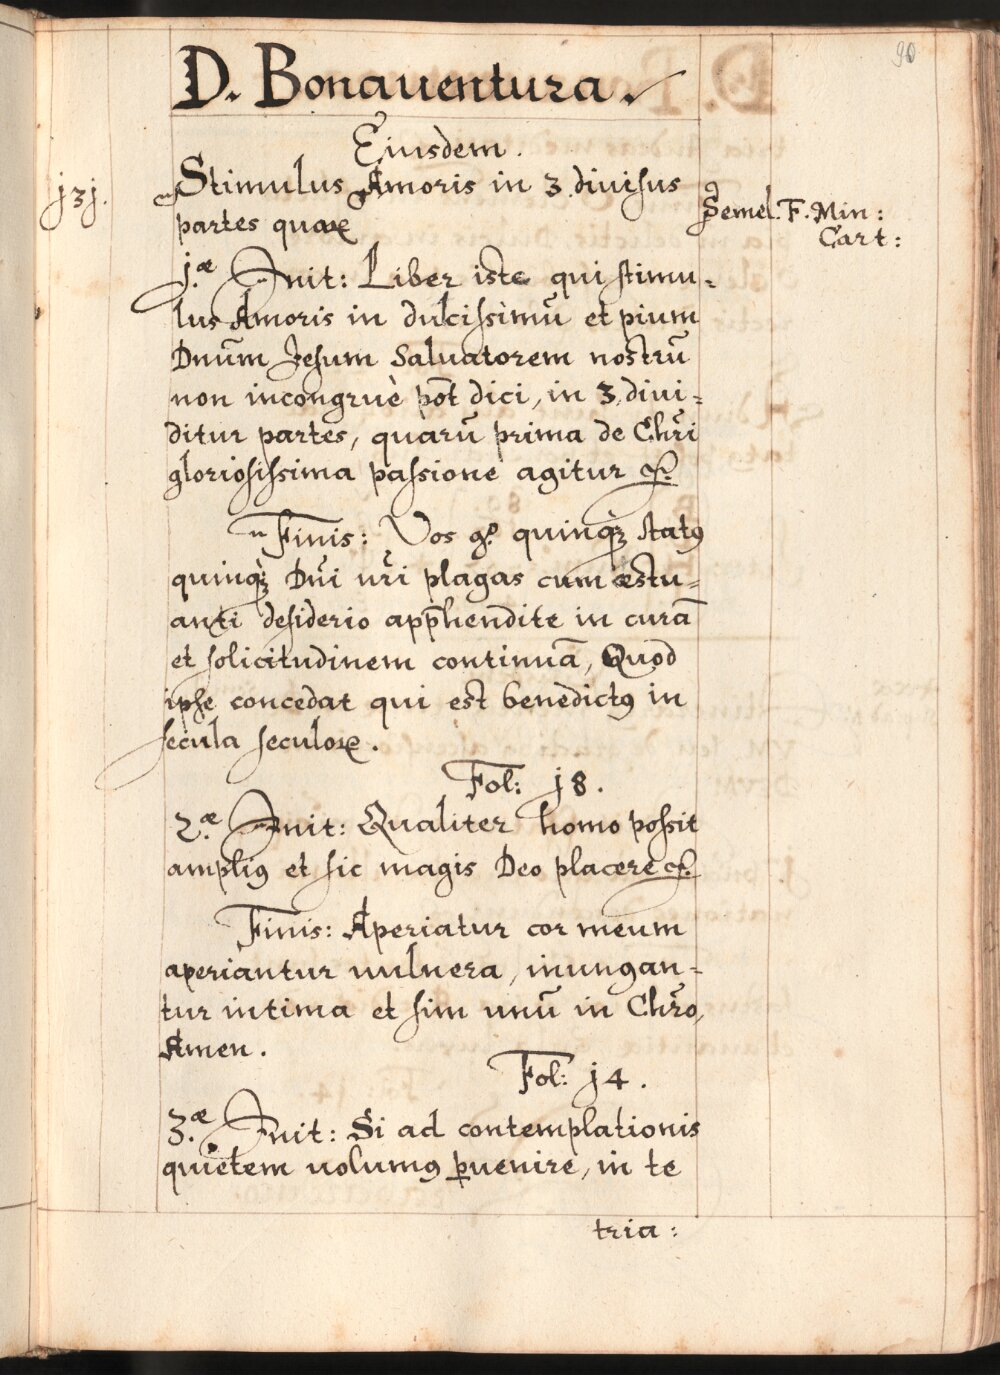 90
D. Bonauentura.
Eiusdem.
j3j.
Stimulus Amoris in 3. diuisus
partes quaꝝ
Semel. F. Min:
Cart:
j.æ Init: Liber iste qui stimu-
lus Amoris in dulcissimū et pium
Dnūm Jesum Saluatorem nostrū
non incongruè põt dici, in 3. diui-
ditur partes, quarū prima de Chr̃i
gloriosissima passione agitur &.
Finis: Vos g.º quinqꝫ statꝰ
quinqꝫ Dñi nr̃i plagas cum æstu-
anti desiderio appr̄hendite in curā
et solicitudinem continuā, Quod
ipse concedat qui est benedictꝰ in
secula seculoꝝ.
Fol: j8.
2.æ Init: Qualiter homo possit
ampliꝰ et sic magis Deo placere &.
Finis: Aperiatur cor meum
aperiantur uulnera, inungan-
tur intima et sim unū in Chr̃o,
Amen.
Fol: j4.
3.æ Init: Si ad contemplationis
quietem uolumꝰ ꝑuenire, in te
tria: